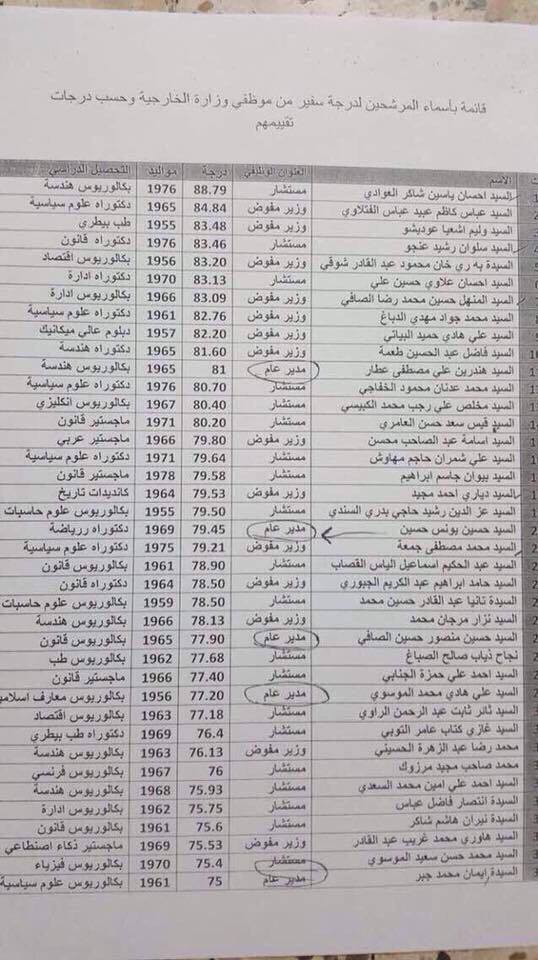 قائمة بأسماء المرشحين لدرجة سفير من موظفي وزارة الخارجية وحسب درجات
تقييمهم
الاسم العنوان الوظيفي درجة مواليد التحصيل الدراسي
السيد احسان ياسين شاكر العوادي مستشار 88.79 1976 بكالوريوس هندسة
السيد عباس كاظم عبيد عباس الفتلاوي وزير مفوض 84.84 1965 دكتوراه علوم سياسية
السيد وليم اشعيا عوديشو وزير مفوض 83.48 1955 طب بيطري
السيد سلوان رشيد عنجو مستشار 83.46 1976 دكتوراه قانون
السيدة به ري خان محمود عبد القادر شوقي وزير مفوض 83.20 1956 بكالوريوس اقتصاد
السيد احسان علاوي حسين علي مستشار 83.13 1970 دكتوراه ادارة
السيد المنهل حسين محمد رضا الصافي وزير مفوض 83.09 1966 بكالوريوس ادارة
السيد محمد جواد مهدي الدباغ وزير مفوض 82.76 1961 دكتوراه علوم سياسية
السيد علي هادي حميد البياتي وزير مفوض 82.20 1957 دبلوم عالي ميكانيك
السيد فاضل عبد الحسين طعمة وزير مفوض 81.60 1965 دكتوراه هندسة
السيد هندرين علي مصطفى عطار مدير عام 81 1965 بكالوريوس هندسة
السيد محمد عدنان محمود الخفاجي مستشار 80.70 1976 دكتوراه علوم سياسية
السيد مخلص علي رجب محمد الكبيسي مستشار 80.40 1967 بكالوريوس انكليزي
السيد قيس سعد حسن العامري مستشار 80.20 1971 ماجستير قانون
السيد اسامة عبد الصاحب محسن وزير مفوض 79.80 1966 ماجستير عربي
السيد علي شمران حاجم مهاوش مستشار 79.64 1971 دكتوراه علوم سياسية
السيد بيوان جاسم ابراهيم مستشار 79.58 1978 ماجستير قانون
السيد دياري احمد مجيد وزير مفوض 79.53 1964 كانديدات تاريخ
السيد عز الدين رشيد حاجي بدري السندي مستشار 79.50 1955 بكالوريوس علوم حاسبات
السيد حسين يونس حسين مدير عام 79.45 1969 دكتوراه ررياضة
السيد محمد مصطفى جمعة وزير مفوض 79.21 1975 دكتوراه علوم سياسية
السيد عبد الحكيم اسماعيل الياس القصاب مستشار 78.90 1961 بكالوريوس قانون
السيد حامد ابراهيم عبد الكريم الجبوري وزير مفوض 78.50 1964 دكتوراه قانون
السيدة تانيا عبد القادر حسين محمد مستشار 78.50 1959 بكالوريوس علوم حاسبات
السيد نزار مرجان محمد وزير مفوض 78.13 1966 بكالوريوس هندسة
السيد حسين منصور حسين الصافي مدير عام 77.90 1965 بكالوريوس قانون
نجاح ذياب صالح الصباغ مستشار 77.68 1962 بكالوريوس طب
السيد احمد علي حمزة الجنابي مستشار 77.40 1966 ماجستير قانون
السيد علي هادي محمد الموسوي مدير عام 77.20 1956 بكالوريوس معارف اسلامية
السيد ثائر ثابت عبد الرحمن الراوي مستشار 77.18 1963 بكالوريوس اقتصاد
السيد غازي كتاب عامر التوبي مستشار 76.4 1969 دكتوراه طب بيطري
محمد رضا عبد الزهرة الحسيني وزير مفوض 76.13 1963 بكالوريوس هندسة
محمد صاحب مجيد مرزوك مستشار 76 1967 بكالوريوس فرنسي
السيد احمد علي امين محمد السعدي مستشار 75.93 1968 بكالوريوس هندسة
السيدة انتصار فاضل عباس مستشار 75.75 1962 بكالوريوس ادارة
السيدة نيران هاشم شاكر مستشار 75.6 1961 بكالوريوس قانون
السيد هاوري محمد غريب عبد القادر وزير مفوض 75.53 1969 ماجستير ذكاء اصنطاعي
السيد محمد حسن سعيد الموسوي مستشار 75.4 1970 بكالوريوس فيزياء
السيدة إيمان محمد جبر مدير عام 75 1961 بكالوريوس علوم سياسية